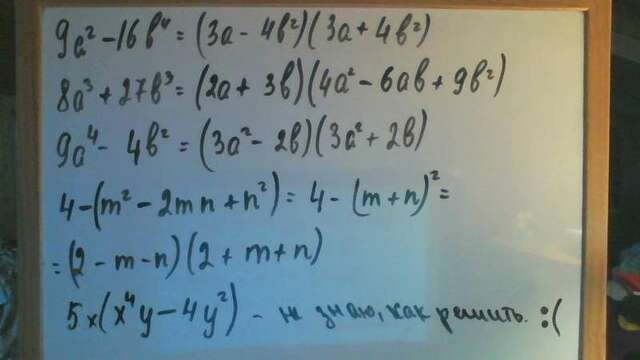 9a² - 16b⁴ = (3a - 4b²)(3a + 4b²)
8a³ + 27b³ = (2a + 3b)(4a² - 6ab + 9b²)
9a⁴ - 4b² = (3a² - 2b)(3a² + 2b)
4 - (m² - 2mn + n²) = 4 - (m + n)² =
= (2 - m - n)(2 + m + n)
5x(x⁴y - 4y²) - не знаю, как решить. :(